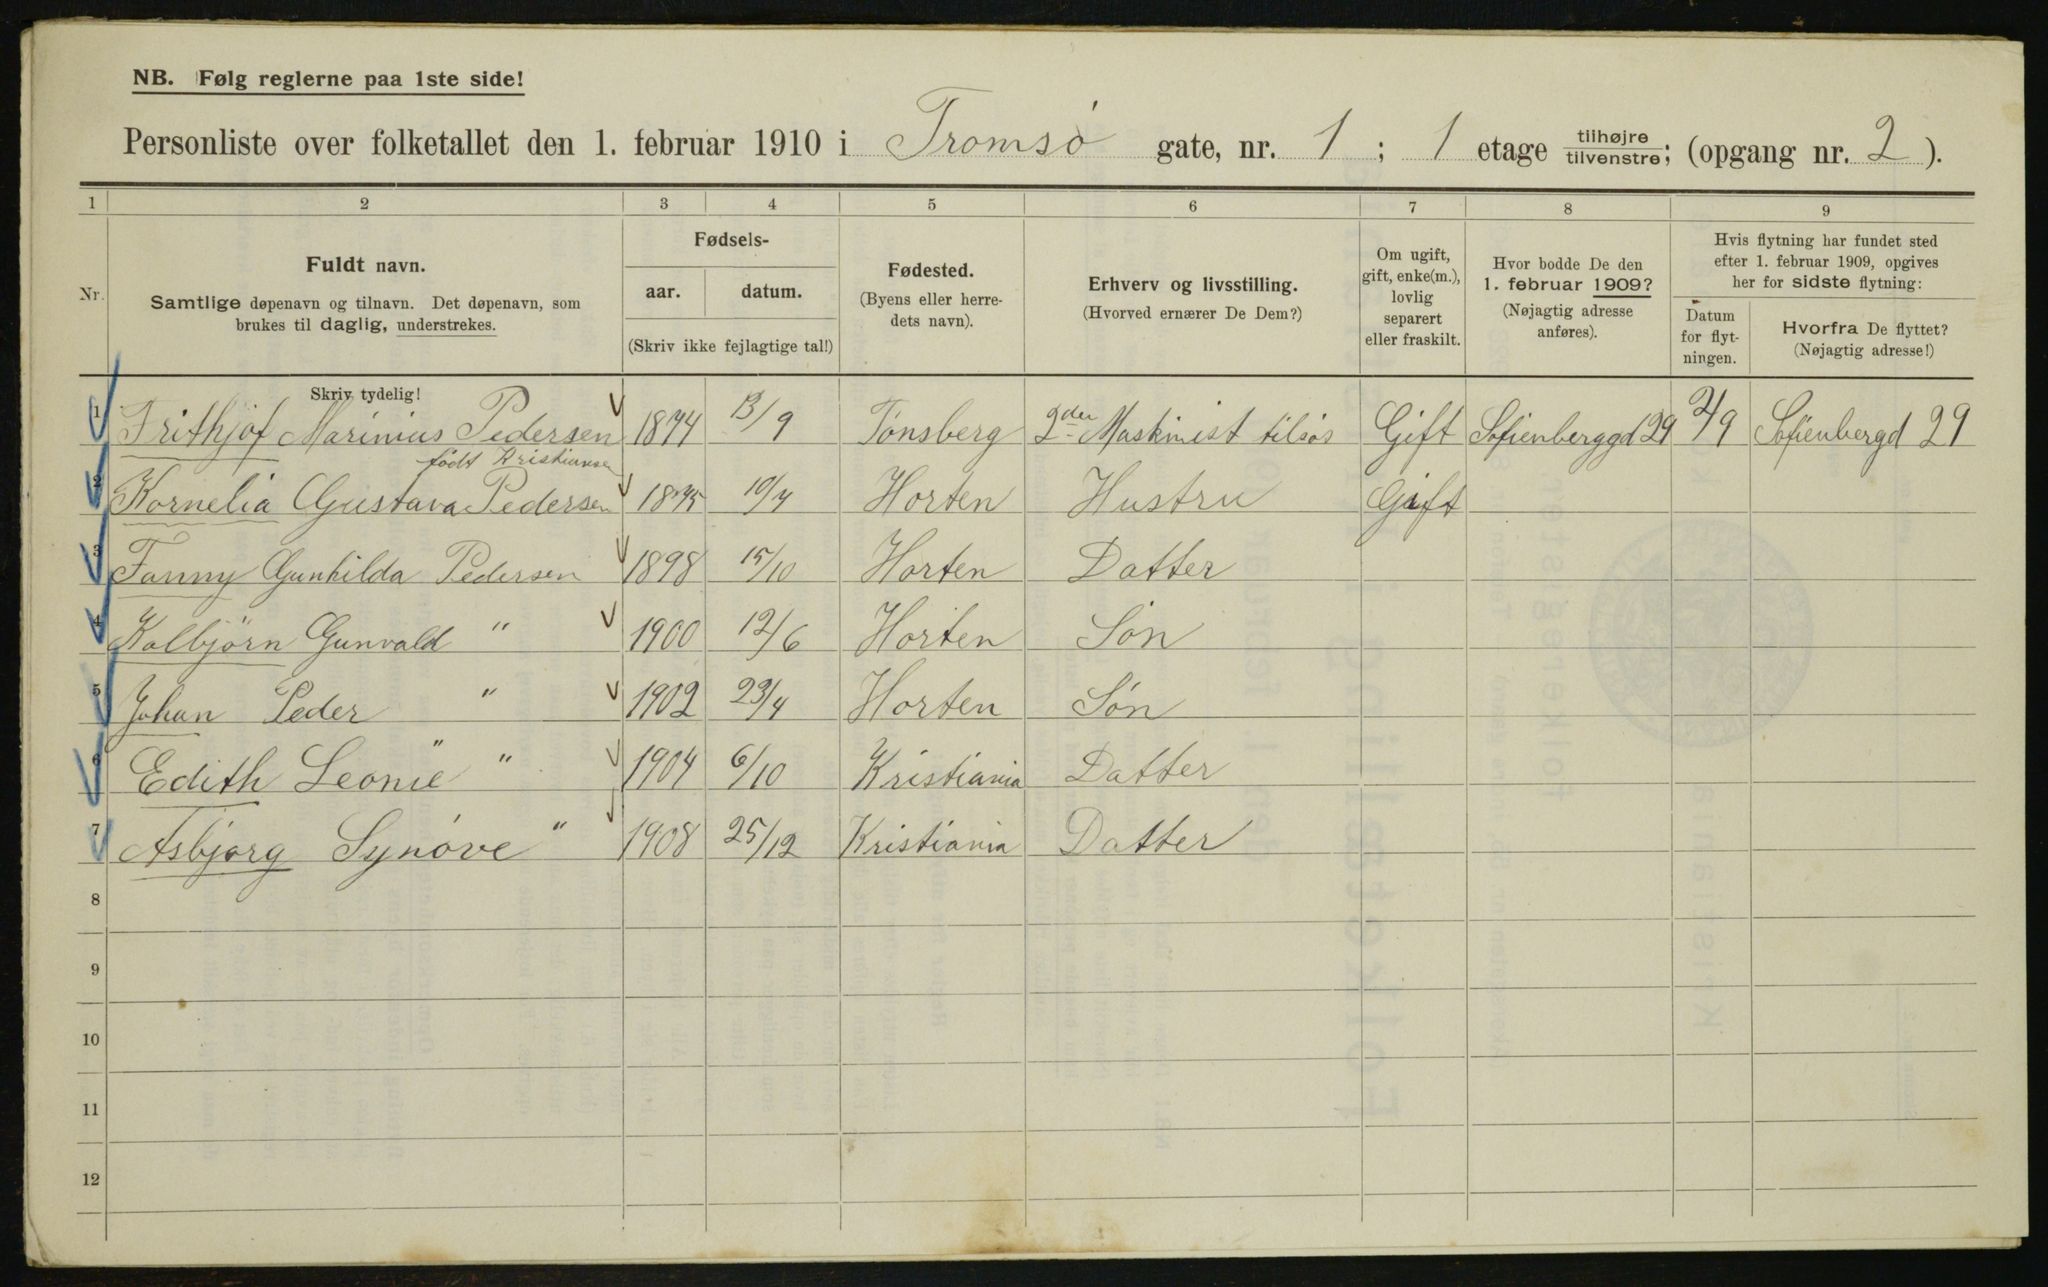 NB. Følg reglerne paa 1ste side!
Personliste over folketallet den 1. februar 1910 i Tromsø gate, nr. 1 ; 1 etage tilhøjre tilvenstre; (opgang nr. 2 ).
1 2 3 4 5 6 7 8 9
Nr.
Fuldt navn.
Samtlige døpenavn og tilnavn. Det døpenavn, som
brukes til daglig, understrekes.
Skriv tydelig!
Fødsels-
aar. datum.
(Skriv ikke fejlagtige tal!)
Fødested.
(Byens eller herre-
dets navn).
Erhverv og livsstilling.
(Hvorved ernærer De Dem?)
Om ugift,
gift, enke(m.),
lovlig
separert
eller fraskilt.
Hvor bodde De den
1. februar 1909?
(Nøjagtig adresse
anføres).
Hvis flytning har fundet sted
efter 1. februar 1909, opgives
her for sidste flytning:
Datum
for flyt-
ningen.
Hvorfra De flyttet?
(Nøjagtig adresse!)
1 Frithjof Marinius Pedersen 1874 13/9 Tønsberg 2den Maskinist tilsøs Gift Sofienberggd 29 2/9 Sofienbergd 29
født Kristiansen
2 Kornelia Gustava Pedersen 1875 10/7 Horten Hustru Gift
3 Fanny Gunhilda Pedersen 1898 15/10 Horten Datter
4 Kolbjörn Gunvald " 1900 12/6 Horten Søn
5 Johan Peder " 1902 23/4 Horten Søn
6 Edith Leonie " 1904 6/10 Kristiania Datter
7 Asbjørg Synøve " 1908 25/12 Kristiania Datter
8
9
10
11
12